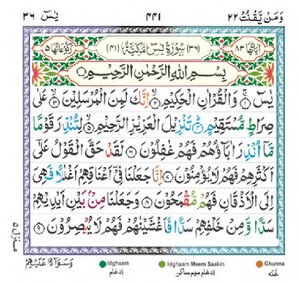 يٰسٓ ٣٦ ٤٤١ وَمَنْ يَّقْنُتْ ٢٢
اٰيَاتُهَا ٨٣ (٣٦) سُوْرَةُ يٰسٓ مَكِّيَّةٌ (٤١) رُكُوْعَاتُهَا ٥
بِسْمِ اللّٰهِ الرَّحْمٰنِ الرَّحِيْمِ
يٰسٓ ۚ﴿١﴾ وَالْقُرْاٰنِ الْحَكِيْمِ ۙ﴿٢﴾ اِنَّكَ لَمِنَ الْمُرْسَلِيْنَ ۙ﴿٣﴾ عَلٰى
صِرَاطٍ مُّسْتَقِيْمٍ ؕ﴿٤﴾ تَنْزِيْلَ الْعَزِيْزِ الرَّحِيْمِ ۙ﴿٥﴾ لِتُنْذِرَ قَوْمًا
مَّاۤ اُنْذِرَ اٰبَآؤُهُمْ فَهُمْ غٰفِلُوْنَ ﴿٦﴾ لَقَدْ حَقَّ الْقَوْلُ عَلٰۤى
اَكْثَرِهِمْ فَهُمْ لَا يُؤْمِنُوْنَ ﴿٧﴾ اِنَّا جَعَلْنَا فِيْۤ اَعْنَاقِهِمْ اَغْلٰلًا فَهِيَ
اِلَى الْاَذْقَانِ فَهُمْ مُّقْمَحُوْنَ ﴿٨﴾ وَجَعَلْنَا مِنْۢ بَيْنِ اَيْدِيْهِمْ
سَدًّا وَّمِنْ خَلْفِهِمْ سَدًّا فَاَغْشَيْنٰهُمْ فَهُمْ لَا يُبْصِرُوْنَ ﴿٩﴾
وَسَوَآءٌ عَلَيْهِمْ
Idghaam Idghaam Meem Saakin Ghunna
ادغام ادغام میم ساکن غنّہ